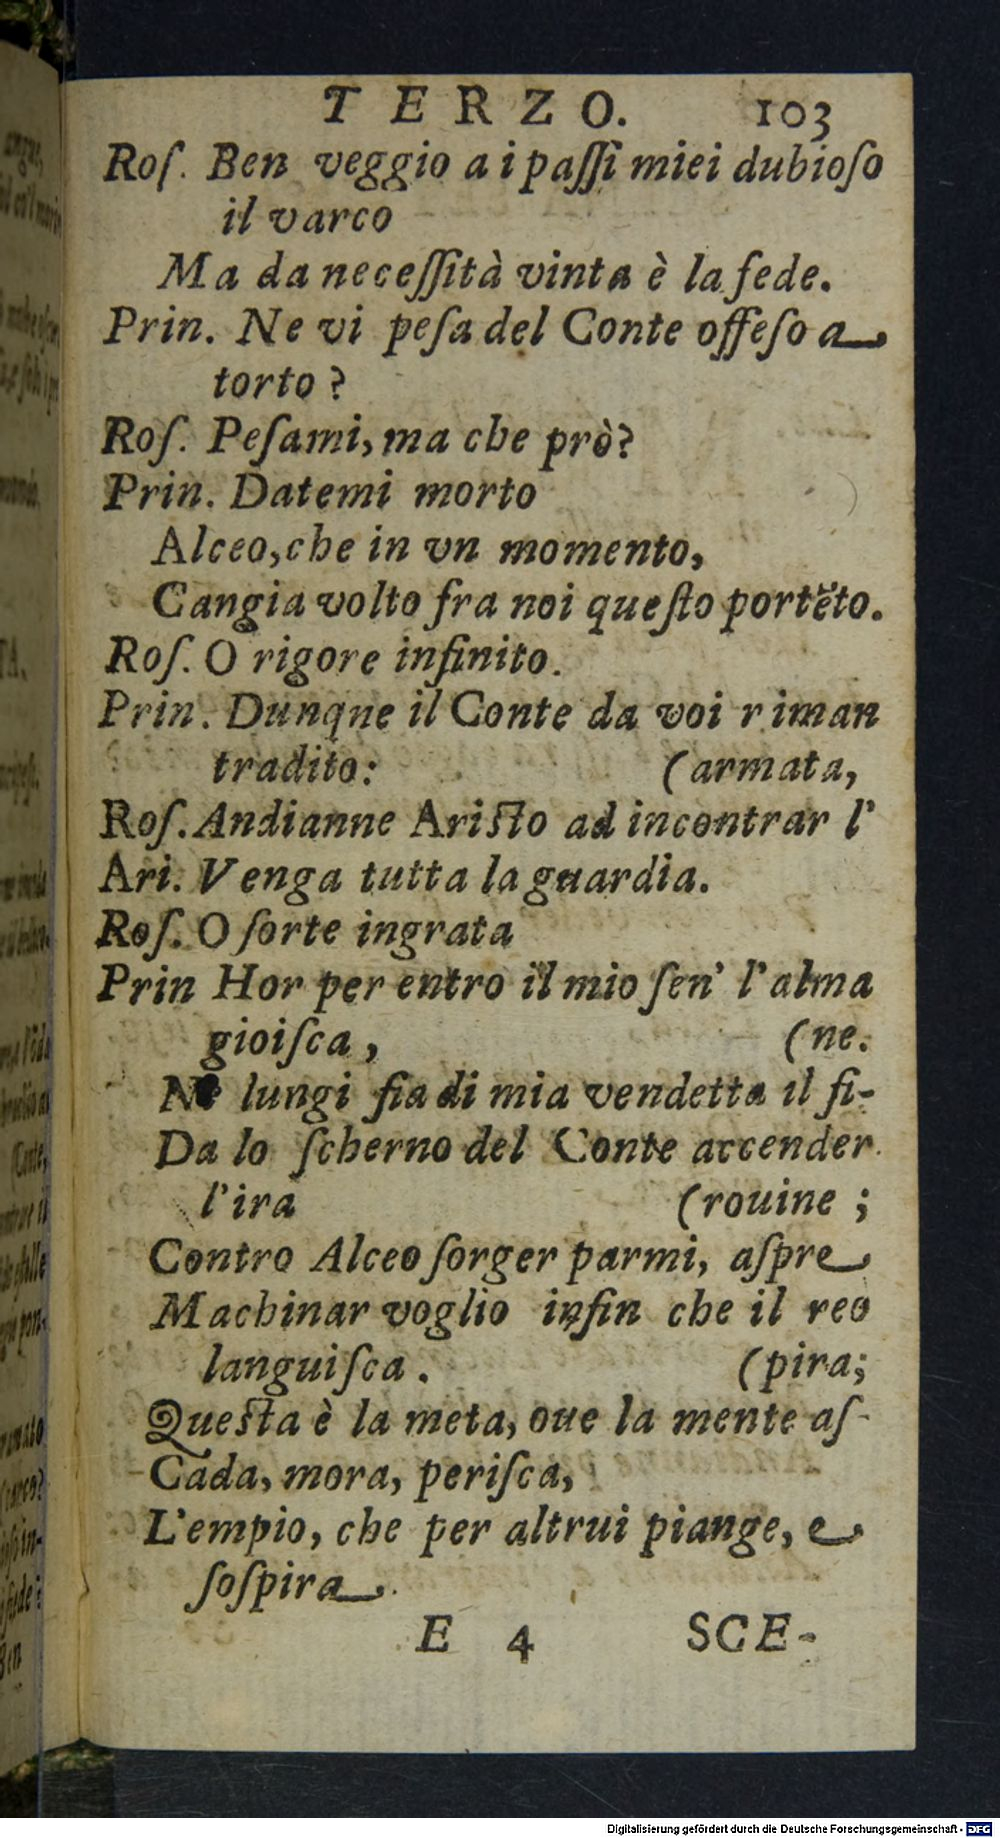 TERZO. 103
Roſ. Ben veggio a i paſſi miei dubioſo
il varco
Ma da neceſſità vinta è la fede.
Prin. Ne vi peſa del Conte offeſo a
torto?
Roſ. Peſami, ma che prò?
Prin. Datemi morto
Alceo, che in vn momento,
Cangia volto fra noi queſto portẽto.
Roſ. O rigore infinito.
Prin. Dunqne il Conte da voi riman
tradito: (armata,
Roſ. Andianne Ariſto ad incontrar l'
Ari. Venga tutta la guardia.
Roſ. O ſorte ingrata
Prin Hor per entro il mio ſen' l'alma
gioiſca, (ne.
Ne lungi fia di mia vendetta il fi-
Da lo ſcherno del Conte accender
l'ira (rouine;
Contro Alceo ſorger parmi, aſpre
Machinar voglio infin che il reo
languiſca. (pira;
Queſta è la meta, oue la mente aſ-
Cada, mora, periſca,
L'empio, che per altrui piange, e
ſoſpira.
E 4 SCE-
Digitalisierung gefördert durch die Deutsche Forschungsgemeinschaft - DFG